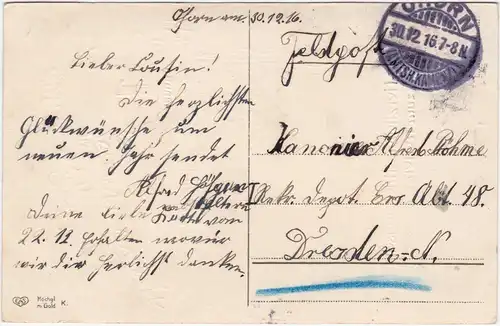 Ohorn am. 30.12.16.
Lieber Cousin!
Die herzlichsten
Glückwünsche zum
neuen. Jahr sendet
Alfred
Deine liebe Karte vom
22.12 Erhalten wovür
wir dir herlichst danken.
Feldpost
OHORN
30.12.16.7-8 N.
Kanonier Alfred Böhme
Rekr. Depot. Ers Abt 48.
Dresden.-N.
Rochel
m.Gold K.